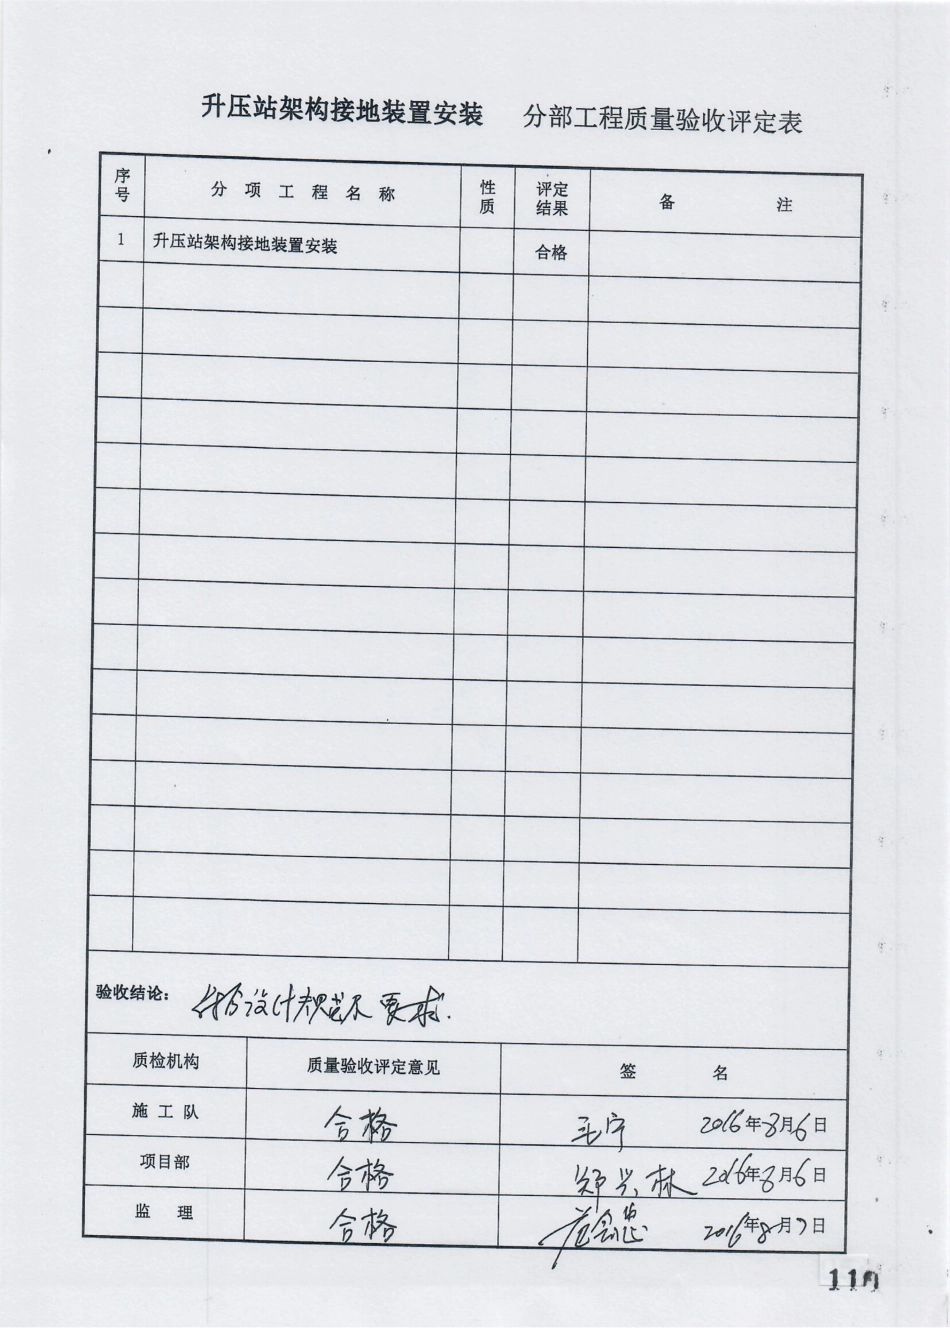 升压站架构接地装置安装 分部工程质量验收评定表
序号 分项工程名称 性质 评定结果 备注
1 升压站架构接地装置安装 合格
验收结论： 设计规范及要求.
质检机构 质量验收评定意见 签名
施工队 合格 王宁 2016年8月6日
项目部 合格 郑兴林 2016年8月6日
监理 合格 2016年8月7日
110